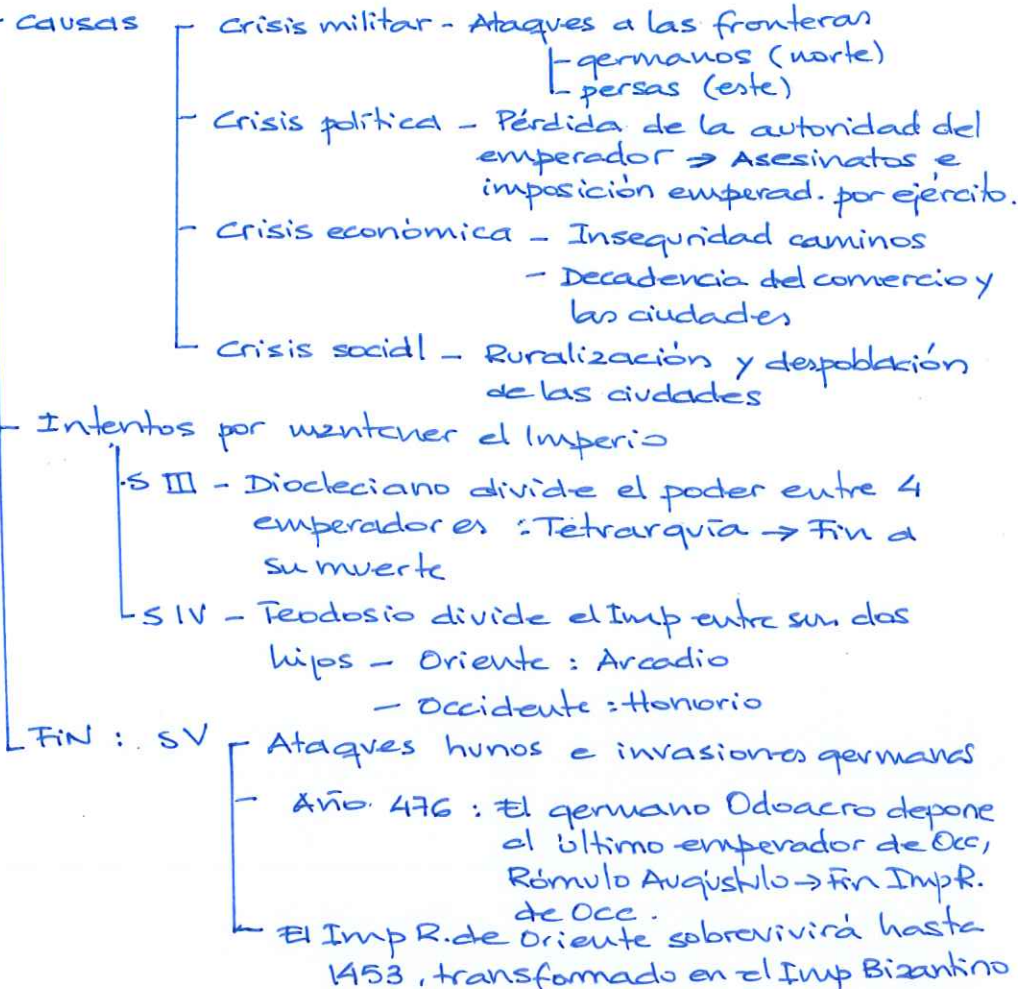 - Causas - Crisis militar - Ataques a las fronteras
- germanos (norte)
- persas (este)
- Crisis política - Pérdida de la autoridad del
emperador ⇒ Asesinatos e
imposición emperad. por ejército.
- Crisis económica - Inseguridad caminos
- Decadencia del comercio y
las ciudades
- Crisis social - Ruralización y despoblación
de las ciudades
- Intentos por mantener el Imperio
- S III - Diocleciano divide el poder entre 4
emperadores : Tetrarquía → Fin a
su muerte
- S IV - Teodosio divide el Imp entre sus dos
hijos - Oriente : Arcadio
- Occidente : Honorio
- FIN : SV - Ataques hunos e invasiones germanas
- Año. 476 : El germano Odoacro depone
al último emperador de Occ,
Rómulo Augústulo → Fin Imp R.
de Occ.
- El Imp R. de Oriente sobrevivirá hasta
1453, transformado en el Imp Bizantino